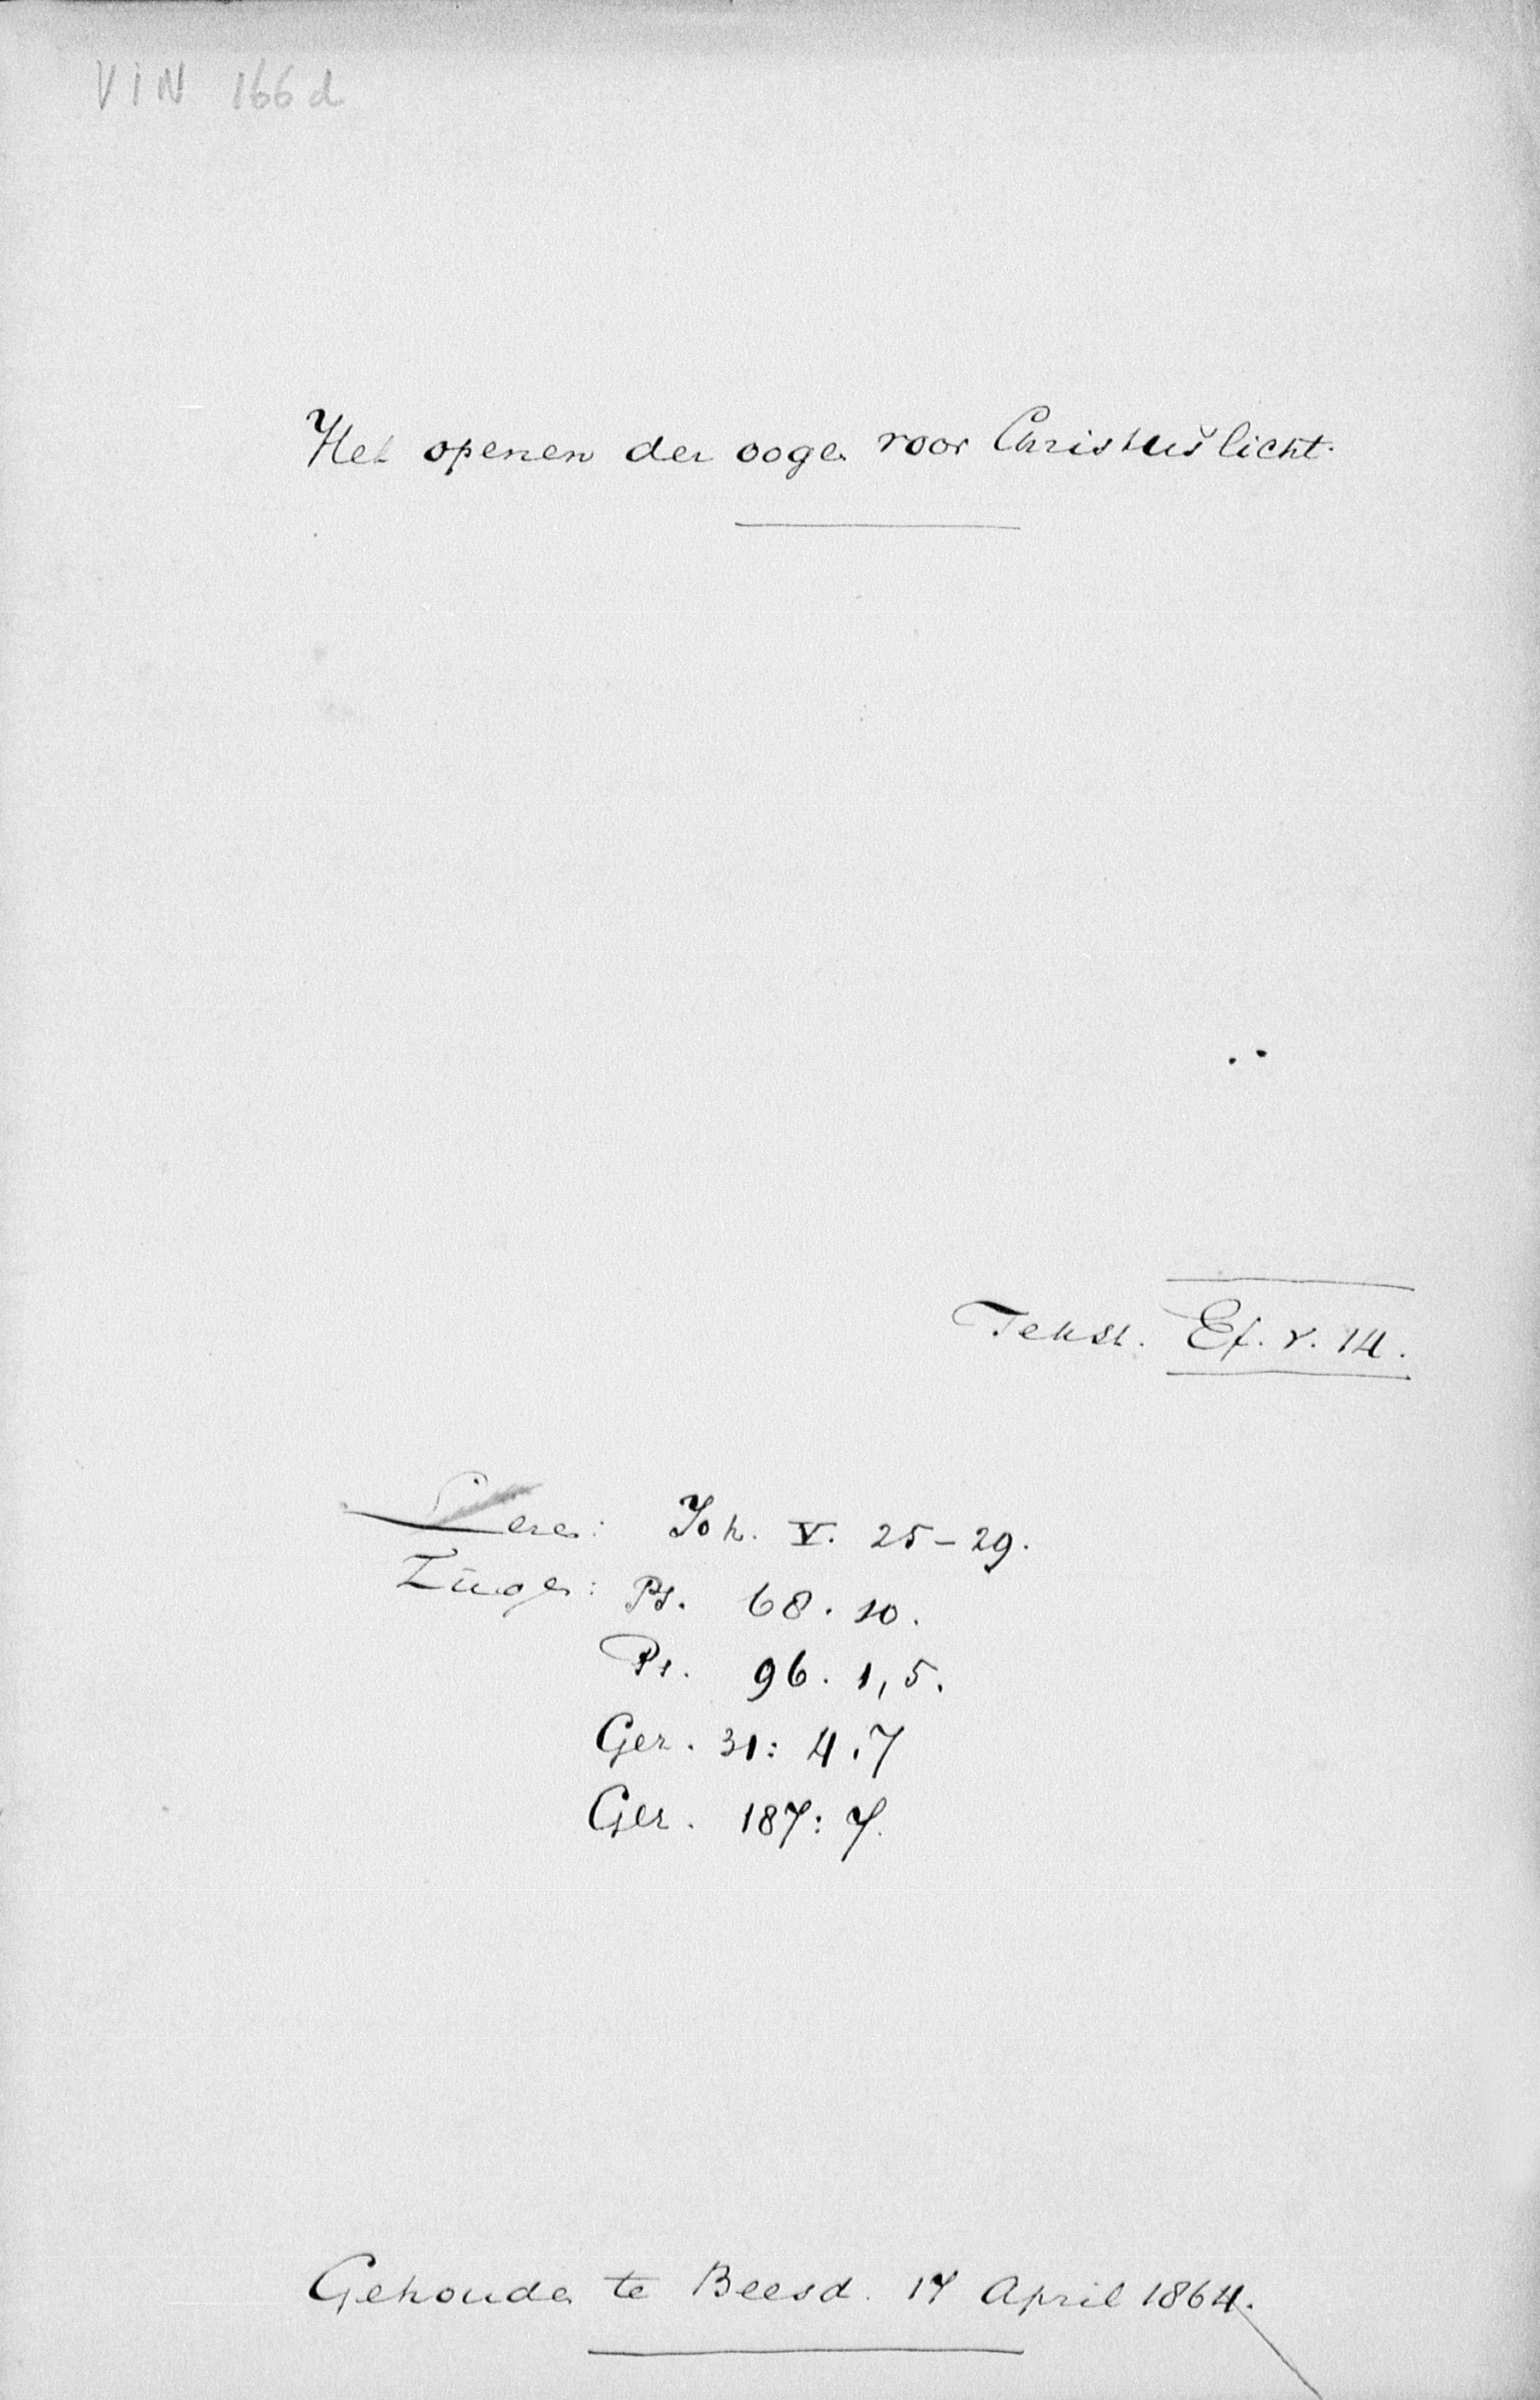 VIN 166d
Het openen der ooge voor Christus licht.
Tekst. Ef. V. 14.
Leze: Joh. V. 25-29.
Zinge: Ps. 68. 10.
Ps. 96. 1, 5.
Gez. 31: 4, 7
Gez. 187: 7.
Gehoude te Beesd. 17 April 1864.